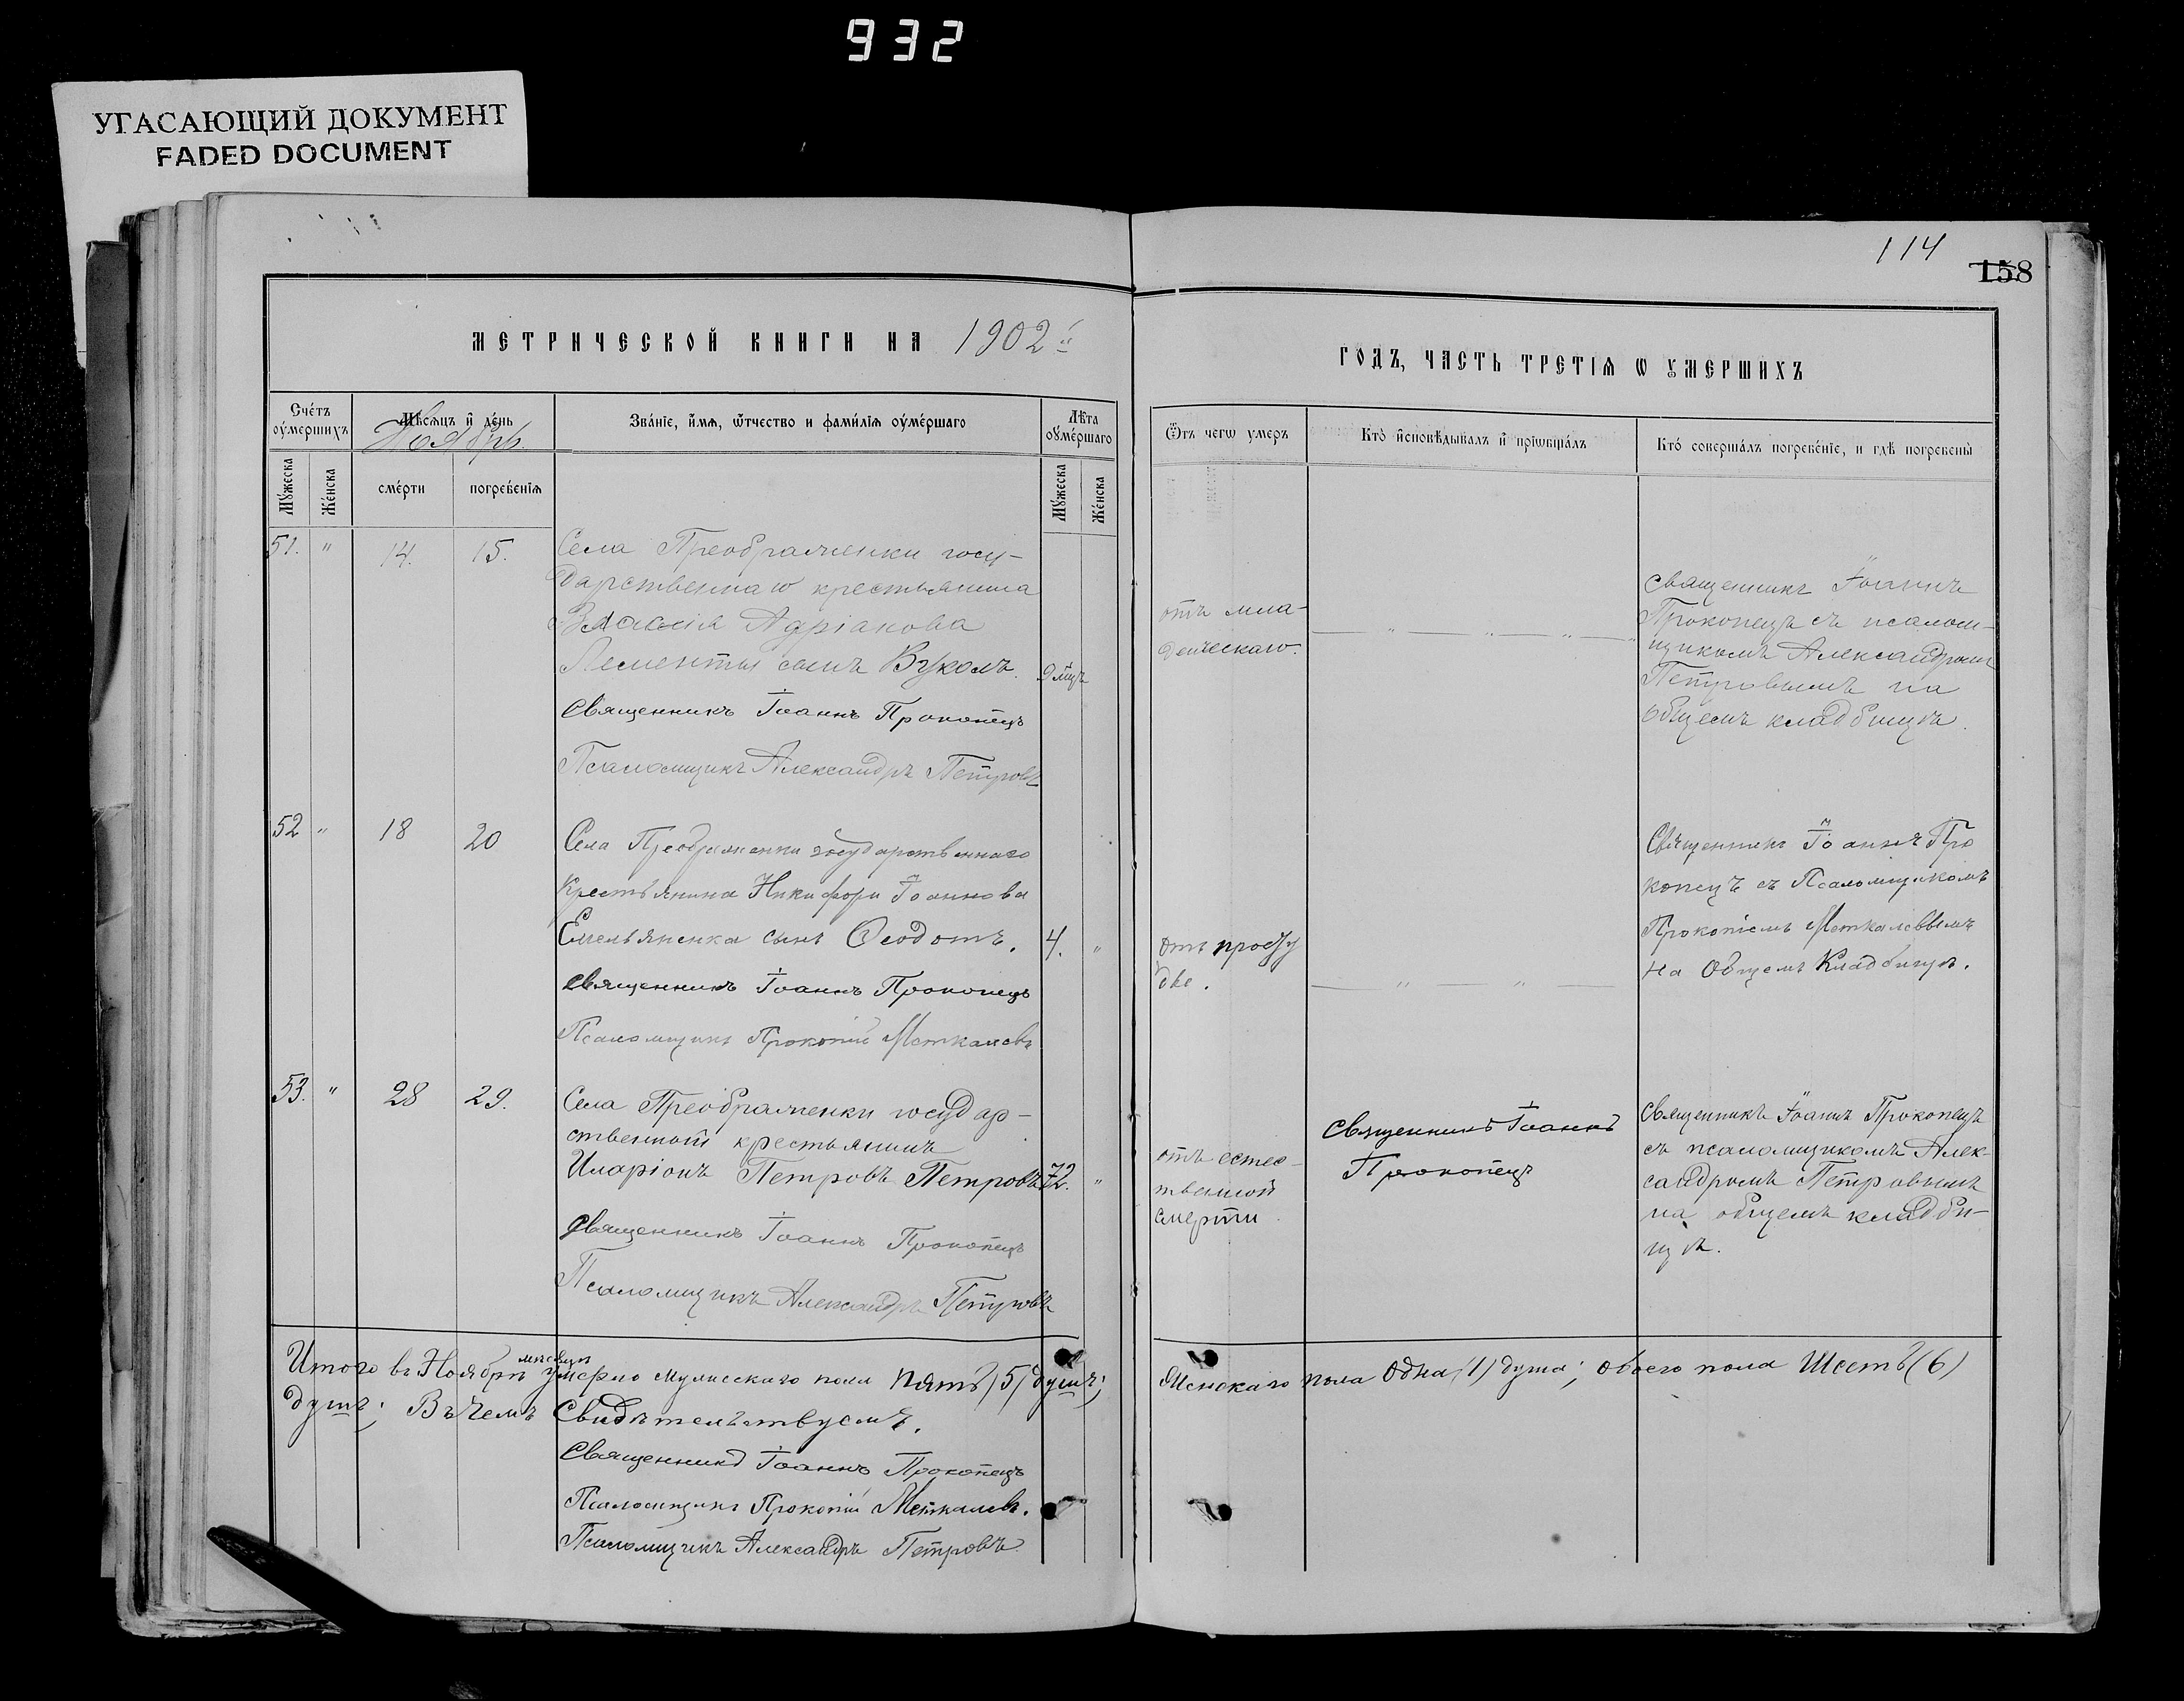 932
УГАСАЮЩИЙ ДОКУМЕНТ
FADED DOCUMENT
114
158
МЕТРИЧЕСКОЙ КНИГИ НА 1902й
ГОДЪ, ЧАСТЬ ТРЕТІѦ Ѡ ꙊМЕРШИХЪ
Сче́тъ оу҆ме́ршихъ
Мѣ́сѧцъ и҆ де́нь
Ноябрь.
Зва́нїе, и҆́мѧ, ѻ҆́тчество и фами́лїѧ оу҆ме́ршагѡ
Лѣ̑та оу҆ме́ршагѡ
Ѿ чегѡ̀ умеръ
Кто̀ и҆сповѣ́дывалъ и҆ прїѡбща́лъ
Кто́ соверша́лъ погребе́нїе, и гдѣ̀ погребены̀
Мꙋ́жеска
Же́нска
сме́рти
погребе́нїѧ
Мꙋ́жеска
Же́нска
51. " 14. 15.
Села Преображенки госу-
дарственнаго крестьянина
Власія Адріанова
Лементы сынъ Вуколъ. 9 мцъ
Священникъ Іоаннъ Прокопецъ
Псаломщикъ Александръ Петровъ
отъ мла-
денческаго.
Священникъ Іоаннъ
Прокопецъ съ псалом-
щикомъ Александромъ
Петровымъ на
общемъ кладбищѣ.
52 " 18 20
Села Преображенки государственнаго
Крестьянина Никифора Іоаннова
Емельяненка сынъ Ѳеодотъ. 4. "
Священникъ Іоаннъ Прокопецъ
Псаломщикъ Прокопій Меткалевъ
Отъ просту
ды.
Священникъ Іоаннъ Про
копецъ съ Псаломщикомъ
Прокопіемъ Меткалевымъ
на Общемъ Кладбищѣ.
53. " 28 29.
Села Преображенки государ-
ственный крестьянинъ
Иларіонъ Петровъ Петровъ 72. "
Священникъ Іоаннъ Прокопецъ
Псаломщикъ Александръ Петровъ
отъ естес-
твенной
смерти.
Священникъ Іоаннъ
Прокопецъ
Священникъ Іоаннъ Прокопецъ
съ псаломщикомъ Алек-
сандромъ Петровымъ
на общемъ кладби-
щѣ.
Итого въ Ноябрѣ мѣсяцѣ умерло мужескаго пола пять (5) душъ; Женскаго пола Одна (1) душа; обоего пола Шесть (6)
душъ; Въ чемъ Свидѣтельствуемъ.
Священникъ Іоаннъ Прокопецъ
Псаломщикъ Прокопій Меткалевъ.
Псаломщикъ Александръ Петровъ